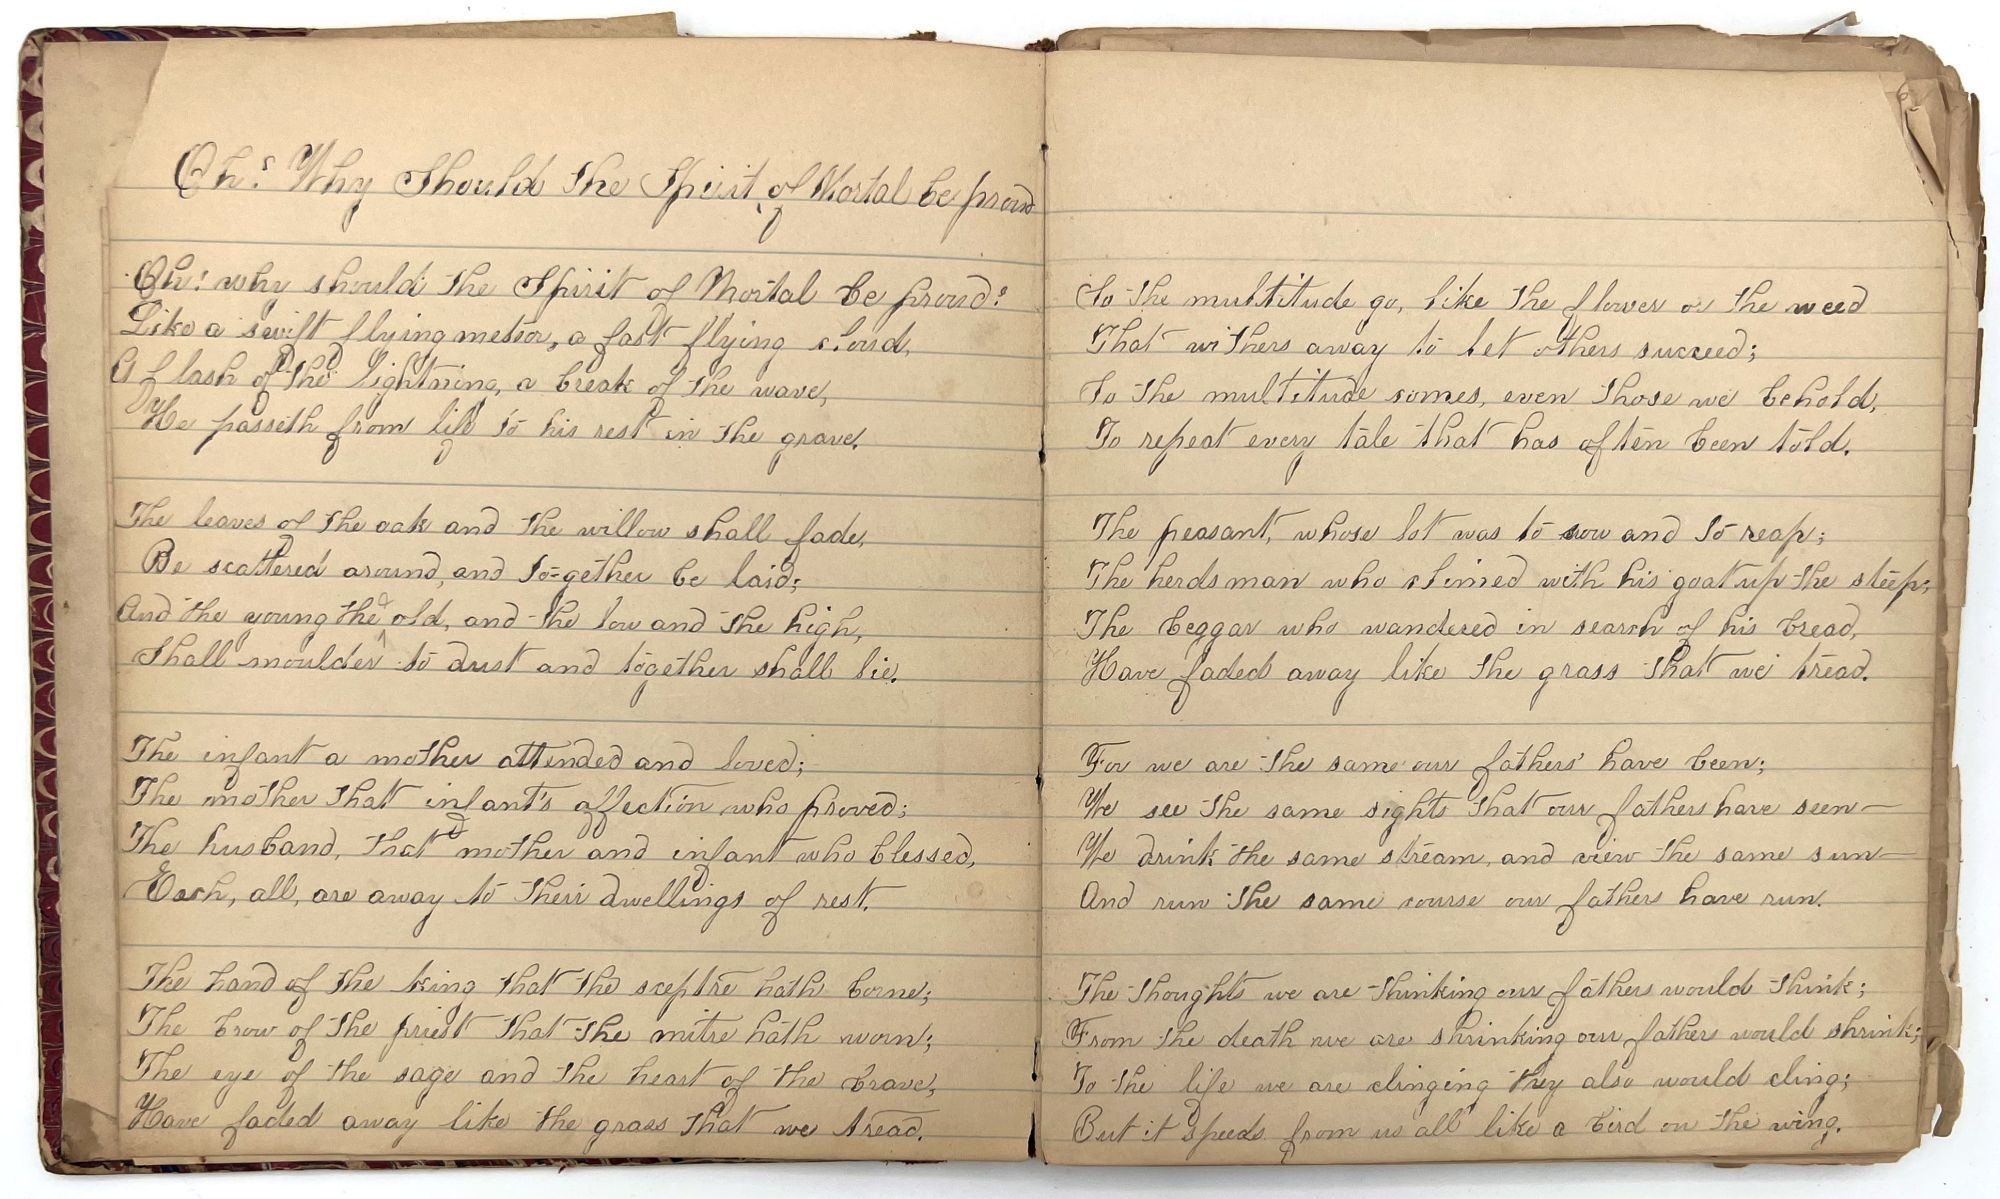 Oh! Why Should the Spirit of Mortal be proud
Oh! why should the Spirit of Mortal be proud?
Like a swift flying meteor, a fast flying cloud,
A flash of the lightning, a break of the wave,
He passeth from life to his rest in the grave.
The leaves of the oak and the willow shall fade,
Be scattered around, and to-gether be laid;
And the young the old, and the low and the high,
Shall moulder to dust and together shall lie.
The infant a mother attended and loved;
The mother that infant's affection who proved;
The husband, that mother and infant who blessed,
Each, all, are away to their dwellings of rest.
The hand of the king that the sceptre hath borne;
The brow of the priest that the mitre hath worn;
The eye of the sage and the heart of the brave,
Have faded away like the grass that we tread.
So the multitude go, like the flower or the weed
That withers away to let others succeed;
So the multitude comes, even those we behold,
To repeat every tale that has often been told.
The peasant, whose lot was to sow and to reap;
The herdsman who climed with his goat up the steep;
The beggar who wandered in search of his bread,
Have faded away like the grass that we tread.
For we are the same our fathers' have been;
We see the same sights that our fathers have seen—
We drink the same stream, and view the same sun—
And run the same course our fathers have run.
The thoughts we are thinking our fathers would think;
From the death we are shrinking our fathers would shrink;
To the life we are clinging they also would cling;
But it speeds from us all like a bird on the wing.